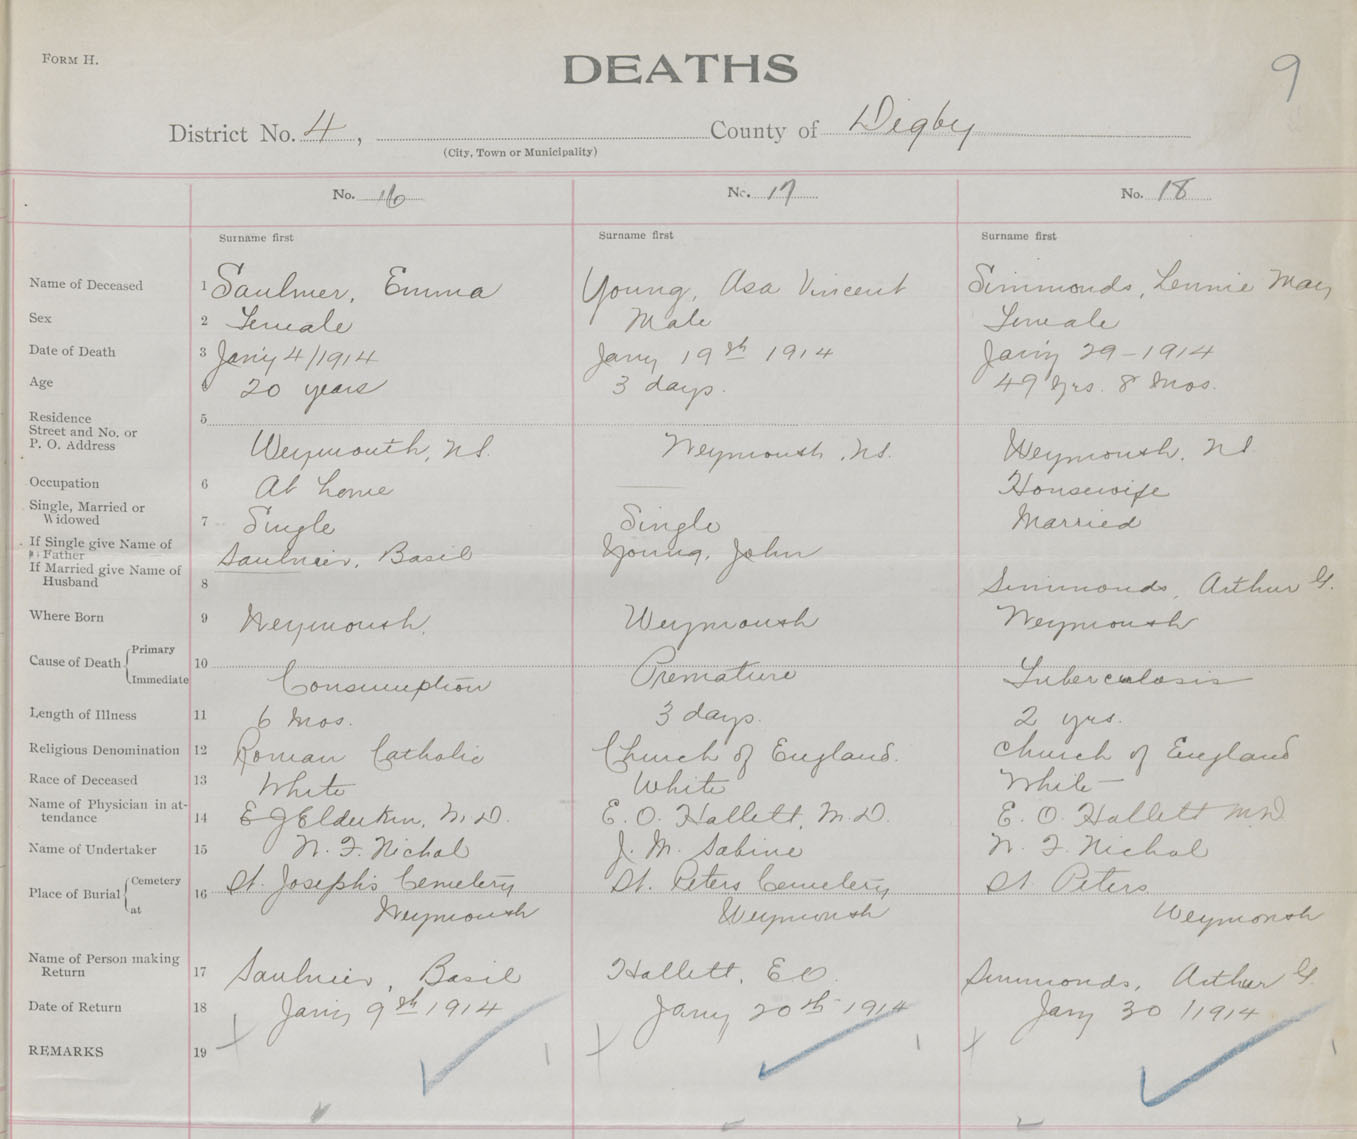 FORM H.
DEATHS
9
District No. 4, County of Digby
(City, Town or Municipality)
No. 16 No. 17 No. 18
Surname first Surname first Surname first
Name of Deceased 1 Saulnier, Emma Young, Asa Vincent Simmonds, Lennie May
Sex 2 Female Male Female
Date of Death 3 Jan'y 4/1914 Jany 19th 1914 Jan'y 29-1914
Age 4 20 years 3 days. 49 yrs. 8 mos.
Residence 5
Street and No. or
P. O. Address Weymouth, N.S. Weymouth, N.S. Weymouth, N.S.
Occupation 6 At home Housewife
Single, Married or
Widowed 7 Single Single Married
If Single give Name of
Father Saulnier, Basil Young, John
If Married give Name of
Husband 8 Simmonds, Arthur G.
Where Born 9 Weymouth. Weymouth Weymouth
Cause of Death Primary 10
Immediate Consumption Premature Tuberculosis
Length of Illness 11 6 mos. 3 days. 2 yrs.
Religious Denomination 12 Roman Catholic Church of England. Church of England
Race of Deceased 13 White White White
Name of Physician in at-
tendance 14 E J Elderkin, M.D. E. O. Hallett, M.D. E. O. Hallett M.D.
Name of Undertaker 15 N. F. Nichol J. M. Sabine N. F. Nichol
Place of Burial Cemetery 16 St. Joseph's Cemetery St. Peters Cemetery St. Peters
at Weymouth Weymouth Weymouth
Name of Person making
Return 17 Saulnier, Basil Hallett, E O. Simmonds, Arthur G.
Date of Return 18 Jan'y 9th 1914 Jany 20th 1914 Jany 30/1914
REMARKS 19